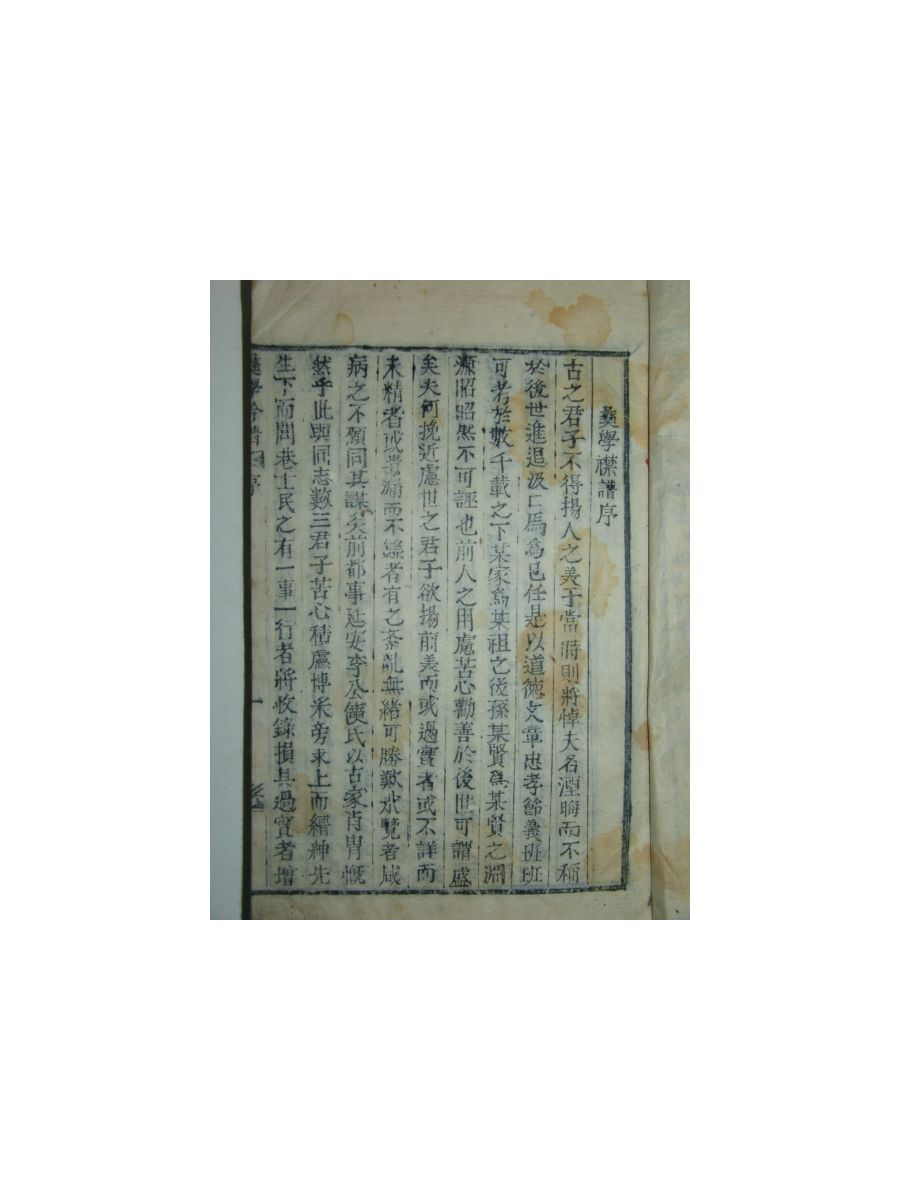 彛學襟譜序
古之君子不得揚人之美于當時則將悼夫名湮晦而不稱
於後世進退汲汲焉爲己任是以道德文章忠孝節義班班
可考於數千載之下某家爲某祖之後孫某賢爲某賢之淵
源昭昭然不可誣也前人之用慮苦心勸善於後世可謂盛
矣夫何挽近慮世之君子欲揚前美而或過實者或不詳而
未精者或遺漏而不錄者有之紊亂無緒可勝歎㢤覽者咸
病之不願同其謀矣前都事延安李公 氏以古家肖胄慨
然乎此與同志數三君子苦心積慮博采旁求上而縉紳先
生下而閭巷士民之有一事一行者將收錄損其過實者增
序
一